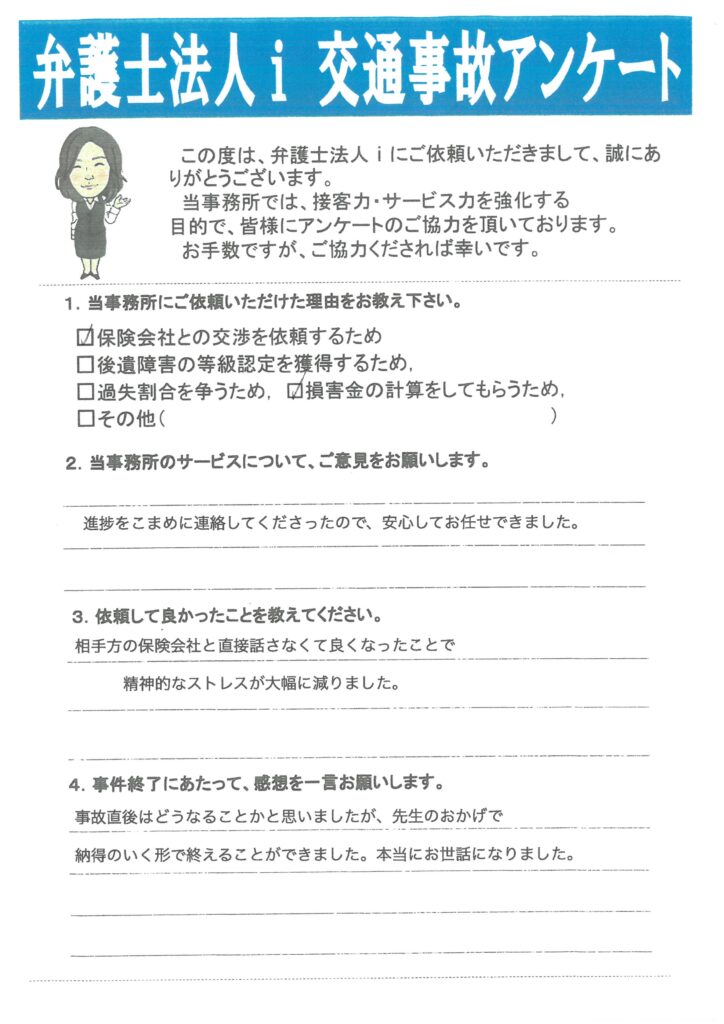 弁護士法人ｉ 交通事故アンケート
この度は、弁護士法人ｉにご依頼いただきまして、誠にあ
りがとうございます。
当事務所では、接客力・サービス力を強化する
目的で、皆様にアンケートのご協力を頂いております。
お手数ですが、ご協力くだされば幸いです。
１．当事務所にご依頼いただけた理由をお教え下さい。
☑保険会社との交渉を依頼するため
□後遺障害の等級認定を獲得するため，
□過失割合を争うため， ☑損害金の計算をしてもらうため，
□その他（ ）
２．当事務所のサービスについて、ご意見をお願いします。
進捗をこまめに連絡してくださったので、安心してお任せできました。
３．依頼して良かったことを教えてください。
相手方の保険会社と直接話さなくて良くなったことで
精神的なストレスが大幅に減りました。
４．事件終了にあたって、感想を一言お願いします。
事故直後はどうなることかと思いましたが、先生のおかげで
納得のいく形で終えることができました。本当にお世話になりました。